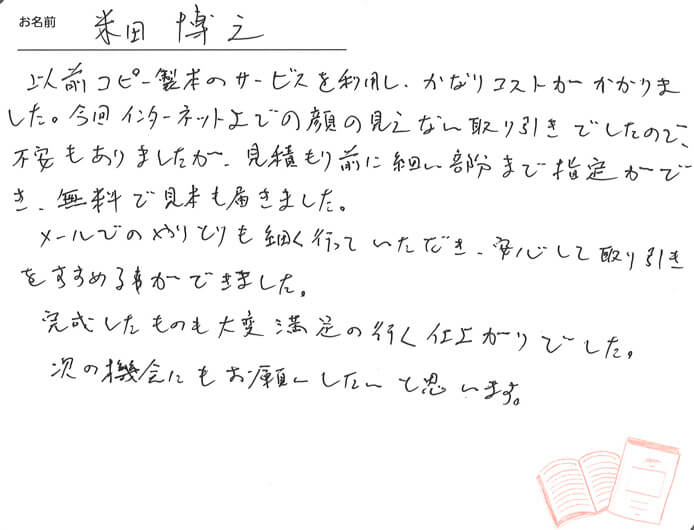 お名前 米田 博之
以前コピー製本のサービスを利用し、かなりコストがかかりま
した。今回インターネット上での顔の見えない取り引きでしたので、
不安もありましたが、見積もり前に細い部分まで指定がで
き、無料で見本も届きました。
メールでのやりとりも細く行っていただき、安心して取り引き
をすすめる事ができました。
完成したものも大変満足の行く仕上がりでした。
次の機会にもお願いしたいと思います。